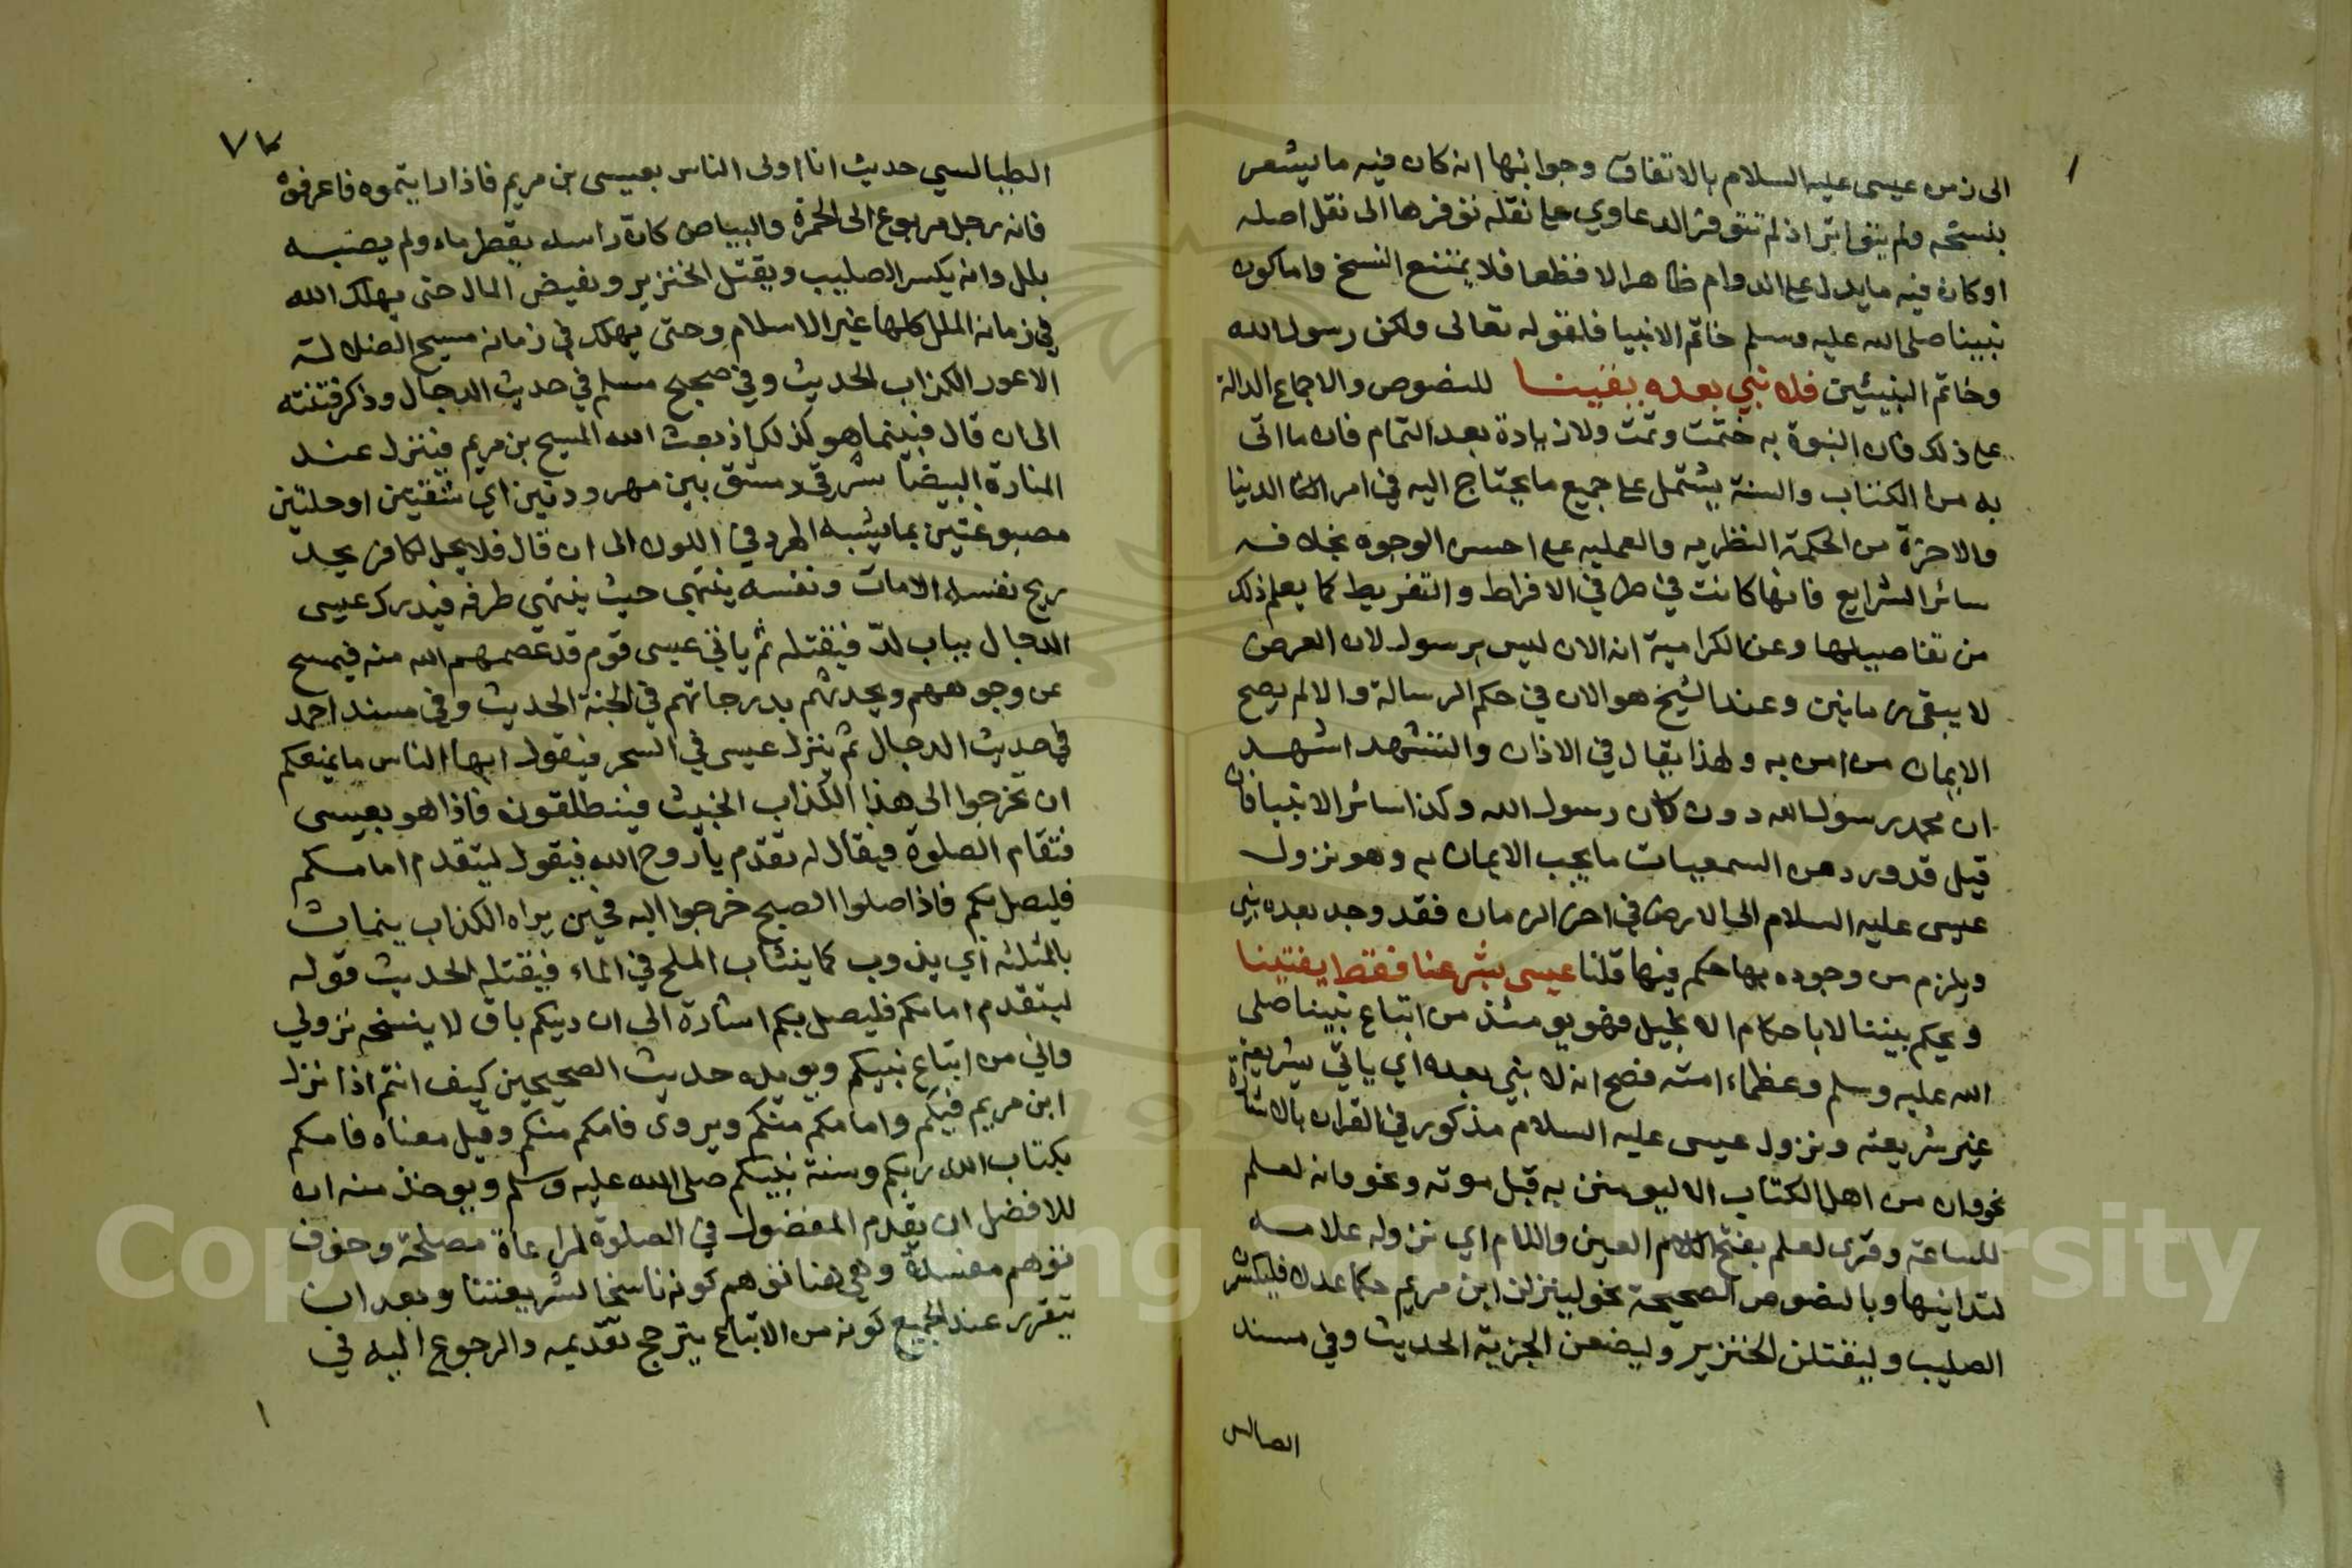 الى زمن عيسى عليه السلام بالاتفاق وجوابها انه كان فيه ما يشعر
بنسخه ولم يتواتر اذ لم تتوفر الدعاوي على نقله توفرها الى نقل اصله
او كان فيه ما يدل على الدوام ظاهرا لا قطعا فلا يمتنع النسخ واما كون
نبينا صلى الله عليه وسلم خاتم الانبيا فلقوله تعالى ولكن رسول الله
وخاتم النبيئين فلا نبي بعده يفينا للنصوص والاجماع الدالة
على ذلك فان النبوة به ختمت وتمت ولا زيادة بعد التمام فان ما اتى
به من الكتاب والسنة يشتمل على جميع ما يحتاج اليه في امر الدنيا
والاخرة من الحكمة النظريه والعمليه على احسن الوجوه بخلاف
سائر الشرايع فانها كانت في طرفي الافراط والتفريط كما يعلم ذلك
من تفاصيلها وعن الكرامية انه الان ليس برسول لان العرض
لا يبقى زمانين وعند الشيخ هو الان في حكم الرسالة والا لم يصح
الايمان من امن به ولهذا يقال في الاذان والتشهد اشهد
ان محمد رسول الله دون كان رسول الله وكذا سائر الانبيا فان
قيل قد ورد من السمعيات ما يجب الايمان به وهو نزول
عيسى عليه السلام الى الارض في اخر الزمان فقد وجد بعده نبي
ويلزم من وجوده بها حكم فيها قلنا عيسى بشرعنا فقط يفتينا
ويحكم بيننا لا باحكام الانجيل فهو يومئذ من اتباع نبينا صلى
الله عليه وسلم وعظماء امته فصح انه لا نبي بعده اي ياتي بشريعة
غير شريعته ونزول عيسى عليه السلام مذكور في القران بالاشارة
نحو وان من اهل الكتاب الا ليومنن به قبل موته ونحو وانه لعلم
للساعة وقرى لعلم بفتح العين واللام اي نزوله علامه
لتدانيها وبالنصوص الصحيحة نحو لينزلن ابن مريم حكما عدلا فليكسر
الصليب وليقتلن الخنزير وليضعن الجزية الحديث وفي مسند
الطيالسي حديث انا اولى الناس بعيسى بن مريم فاذا رايتموه فاعرفوه
فانه رجل مربوع الى الحمرة والبياض كان راسه يقطر ماء ولم يصبه
بلل وانه يكسر الصليب ويقتل الخنزير ويفيض المال حتى يهلك الله
في زمانه الملل كلها غير الاسلام وحتى يهلك في زمانه مسيح الضلالة
الاعور الكذاب الحديث وفي صحيح مسلم في حديث الدجال وذكر فتنته
الى ان قال فبينما هو كذلك اذ بعث الله المسيح بن مريم فينزل عند
المنارة البيضا شرقي دمشق بين مهرودتين اي شقتين او حلتين
مصبوغتين بما يشبه الهرد في اللون الى ان قال فلا يحل لكافر يجد
ريح نفسه الا مات ونفسه ينتهي حيث ينتهي طرفه فيدرك عيسى
الدجال بباب لد فيقتله ثم ياتي عيسى قوم قد عصمهم الله منه فيمسح
عن وجوههم ويحدثهم بدرجاتهم في الجنة الحديث وفي مسند احمد
في حديث الدجال ثم ينزل عيسى في السحر فيقول ايها الناس ما يمنعكم
ان تخرجوا الى هذا الكذاب الخبيث فينطلقون فاذا هو بعيسى
فتقام الصلوة فيقال له تقدم يا روح الله فيقول ليتقدم امامكم
فليصل بكم فاذا صلوا الصبح خرجوا اليه فحين يراه الكذاب ينماث
بالمثلثه اي يذوب كما ينماث الملح في الماء فيقتله الحديث قوله
ليتقدم امامكم فليصل بكم اشارة الى ان دينكم باق لا ينسخه نزولي
واني من اتباع نبيكم ويويده حديث الصحيحين كيف انتم اذا نزل
ابن مريم فيكم وامامكم منكم ويروى فامكم منكم وقيل معناه فامكم
بكتاب الله ربكم وسنة نبيكم صلى الله عليه وسلم ويوخذ منه ان
للافضل ان يقدم المفضول في الصلوة لمراعاة مصلحة وخوف
توهم مفسدة وهي هنا توهم كونه ناسخا لشريعتنا وبعد ان
يتقرر عند الجميع كونه من الاتباع يترجح تقديمه والرجوع اليه في
Copyright © King Saud University